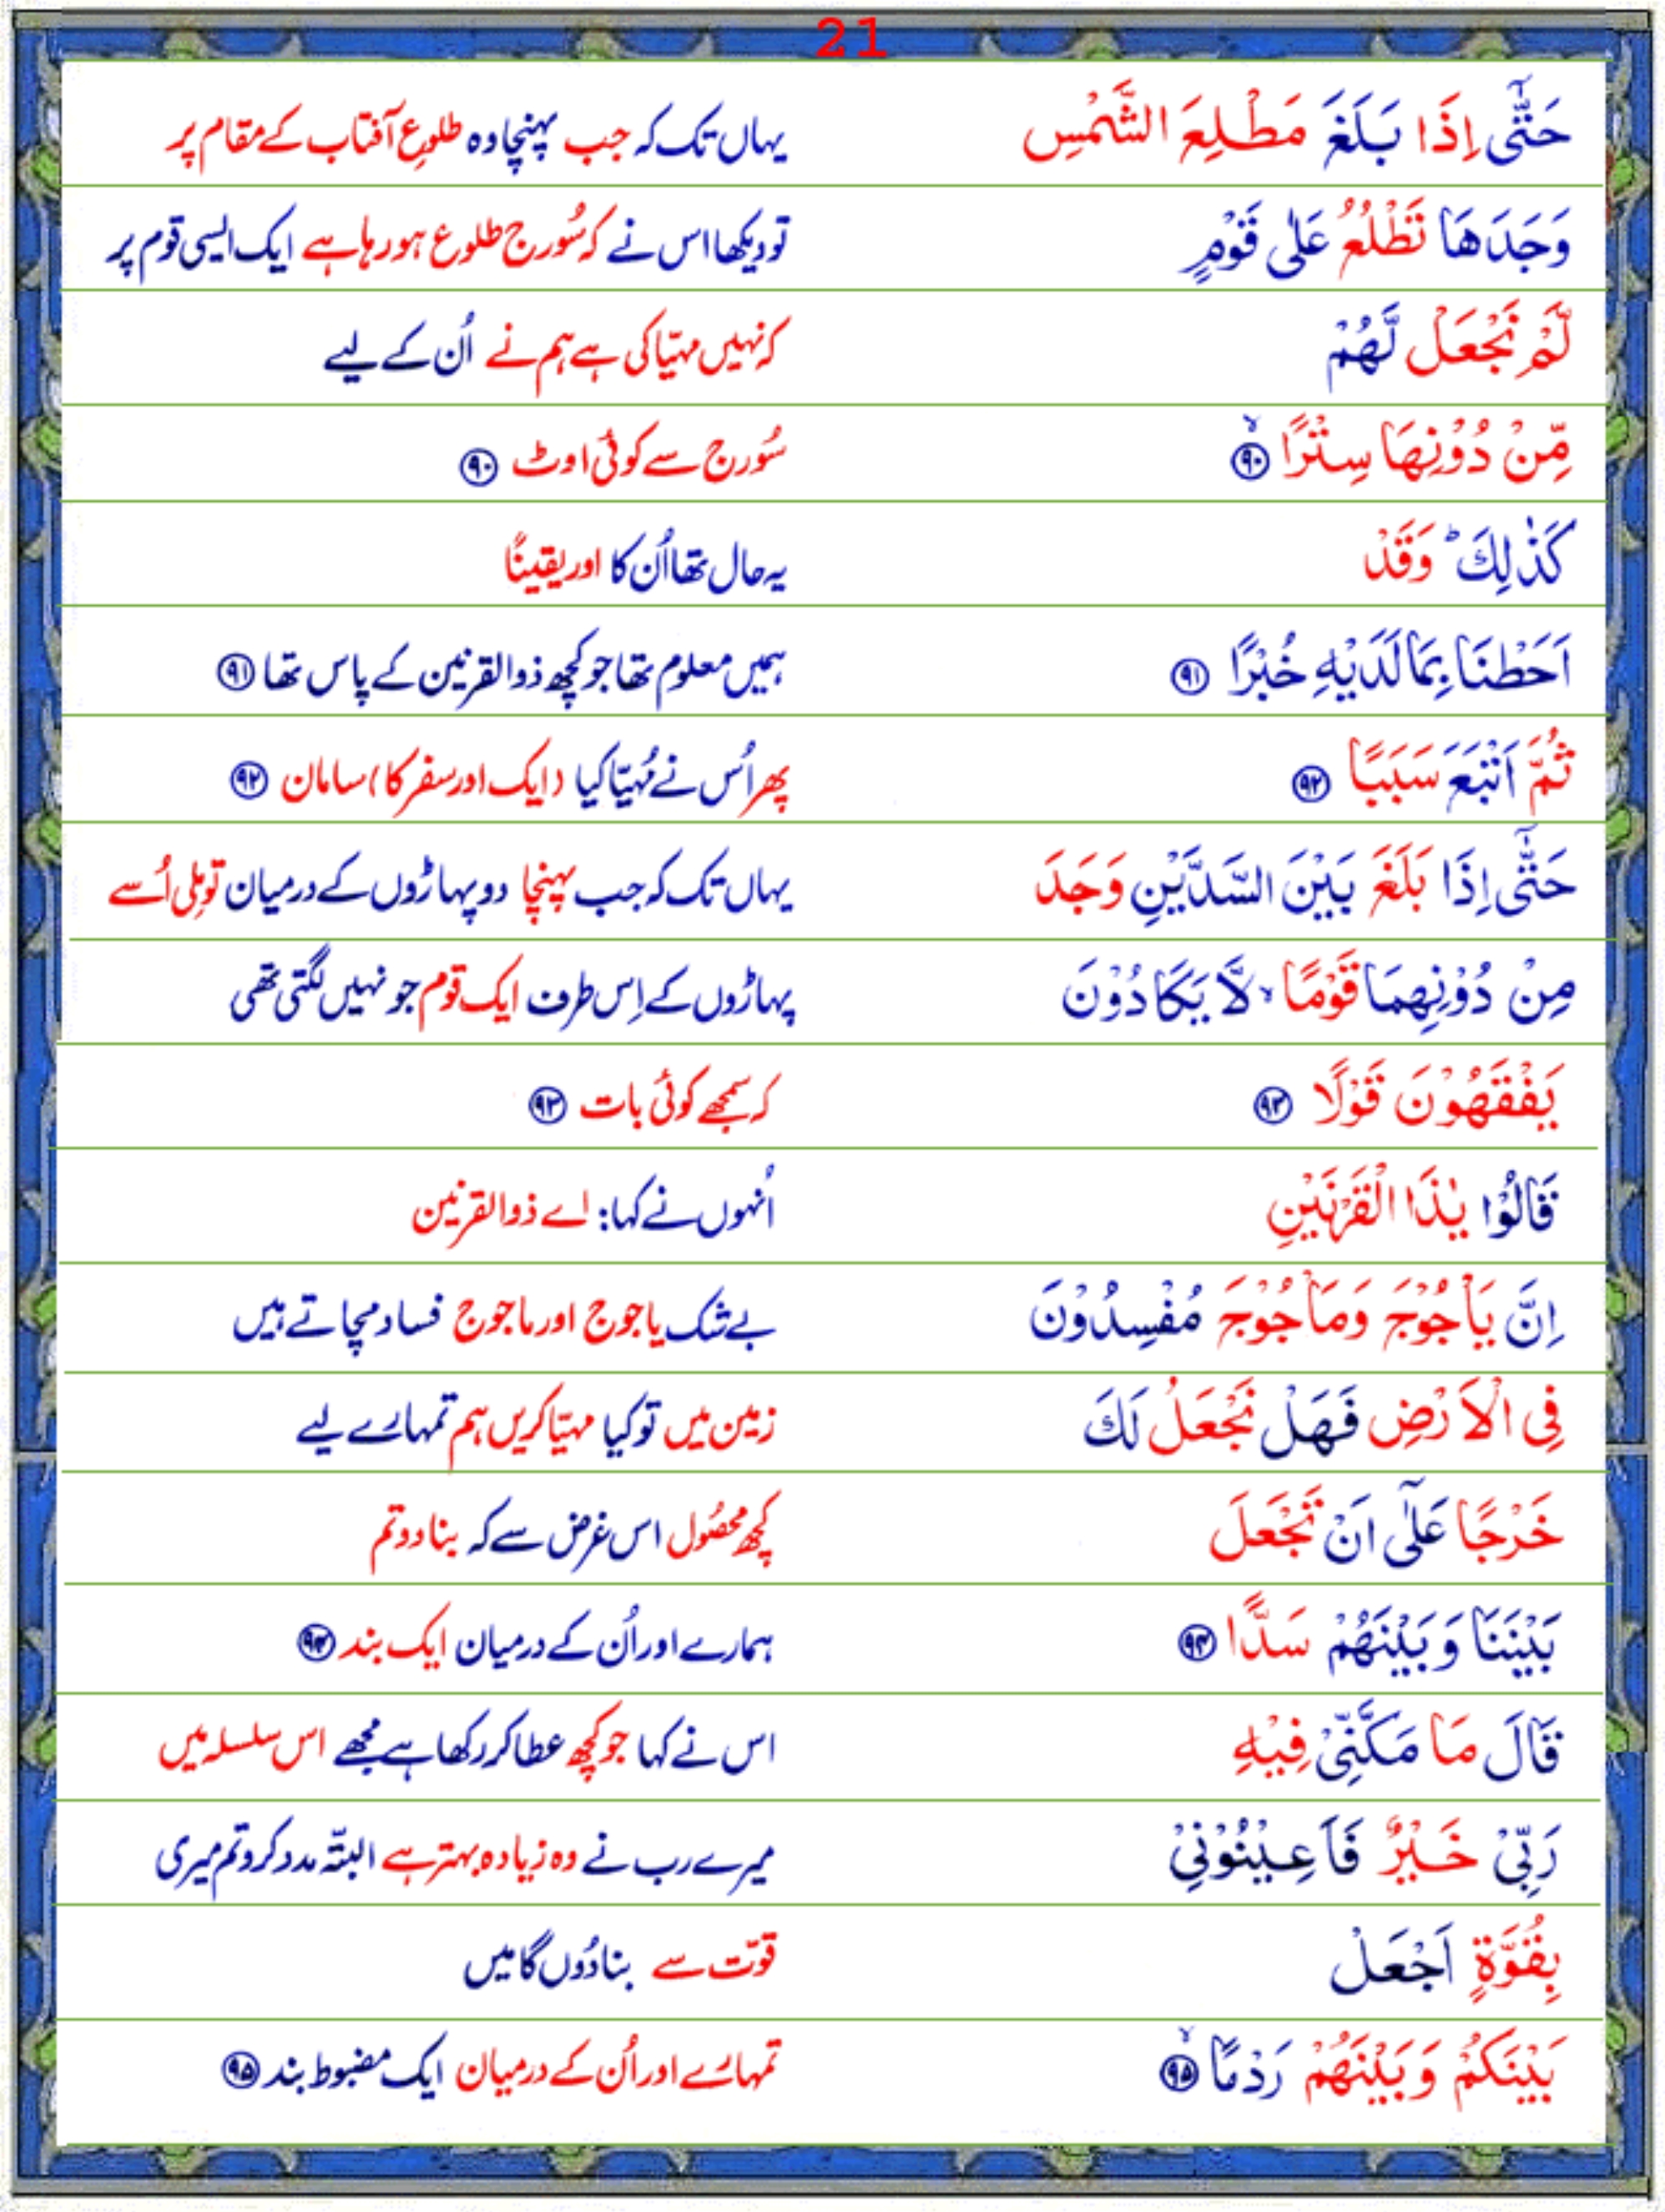 21
حَتّٰٓی اِذَا بَلَغَ مَطْلِعَ الشَّمْسِ یہاں تک کہ جب پہنچا وہ طلوعِ آفتاب کے مقام پر
وَجَدَهَا تَطْلُعُ عَلٰی قَوْمٍ تو دیکھا اس نے کہ سُورج طلوع ہو رہا ہے ایک ایسی قوم پر
لَّمْ نَجْعَلْ لَّهُمْ کہ نہیں مہیّا کی ہے ہم نے اُن کے لیے
مِّنْ دُوْنِهَا سِتْرًا ۙ۹۰ سُورج سے کوئی اوٹ ۹۰
كَذٰلِكَ ؕ وَقَدْ یہ حال تھا اُن کا اور یقیناً
اَحَطْنَا بِمَا لَدَیْهِ خُبْرًا ۹۱ ہمیں معلوم تھا جو کچھ ذوالقرنین کے پاس تھا ۹۱
ثُمَّ اَتْبَعَ سَبَبًا ۹۲ پھر اُس نے مُہیّا کیا (ایک اور سفر کا) سامان ۹۲
حَتّٰٓی اِذَا بَلَغَ بَیْنَ السَّدَّیْنِ وَجَدَ یہاں تک کہ جب پہنچا دو پہاڑوں کے درمیان تو ملی اُسے
مِنْ دُوْنِهِمَا قَوْمًا ۙ لَّا یَكَادُوْنَ پہاڑوں کے اِس طرف ایک قوم جو نہیں لگتی تھی
یَفْقَهُوْنَ قَوْلًا ۹۳ کہ سمجھے کوئی بات ۹۳
قَالُوْا یٰذَا الْقَرْنَیْنِ اُنہوں نے کہا: اے ذوالقرنین
اِنَّ یَاْجُوْجَ وَمَاْجُوْجَ مُفْسِدُوْنَ بے شک یاجوج اور ماجوج فساد مچاتے ہیں
فِی الْاَرْضِ فَهَلْ نَجْعَلُ لَكَ زمین میں تو کیا مہیّا کریں ہم تمہارے لیے
خَرْجًا عَلٰٓی اَنْ تَجْعَلَ کچھ محصُول اس غرض سے کہ بنا دو تم
بَیْنَنَا وَبَیْنَهُمْ سَدًّا ۹۴ ہمارے اور اُن کے درمیان ایک بند ۹۴
قَالَ مَا مَكَّنِّیْ فِیْهِ اس نے کہا جو کچھ عطا کر رکھا ہے مجھے اس سلسلہ میں
رَبِّیْ خَیْرٌ فَاَعِیْنُوْنِیْ میرے رب نے وہ زیادہ بہتر ہے البتّہ مدد کرو تم میری
بِقُوَّةٍ اَجْعَلْ قوّت سے بنا دُوں گا میں
بَیْنَكُمْ وَبَیْنَهُمْ رَدْمًا ۙ۹۵ تمہارے اور اُن کے درمیان ایک مضبوط بند ۹۵